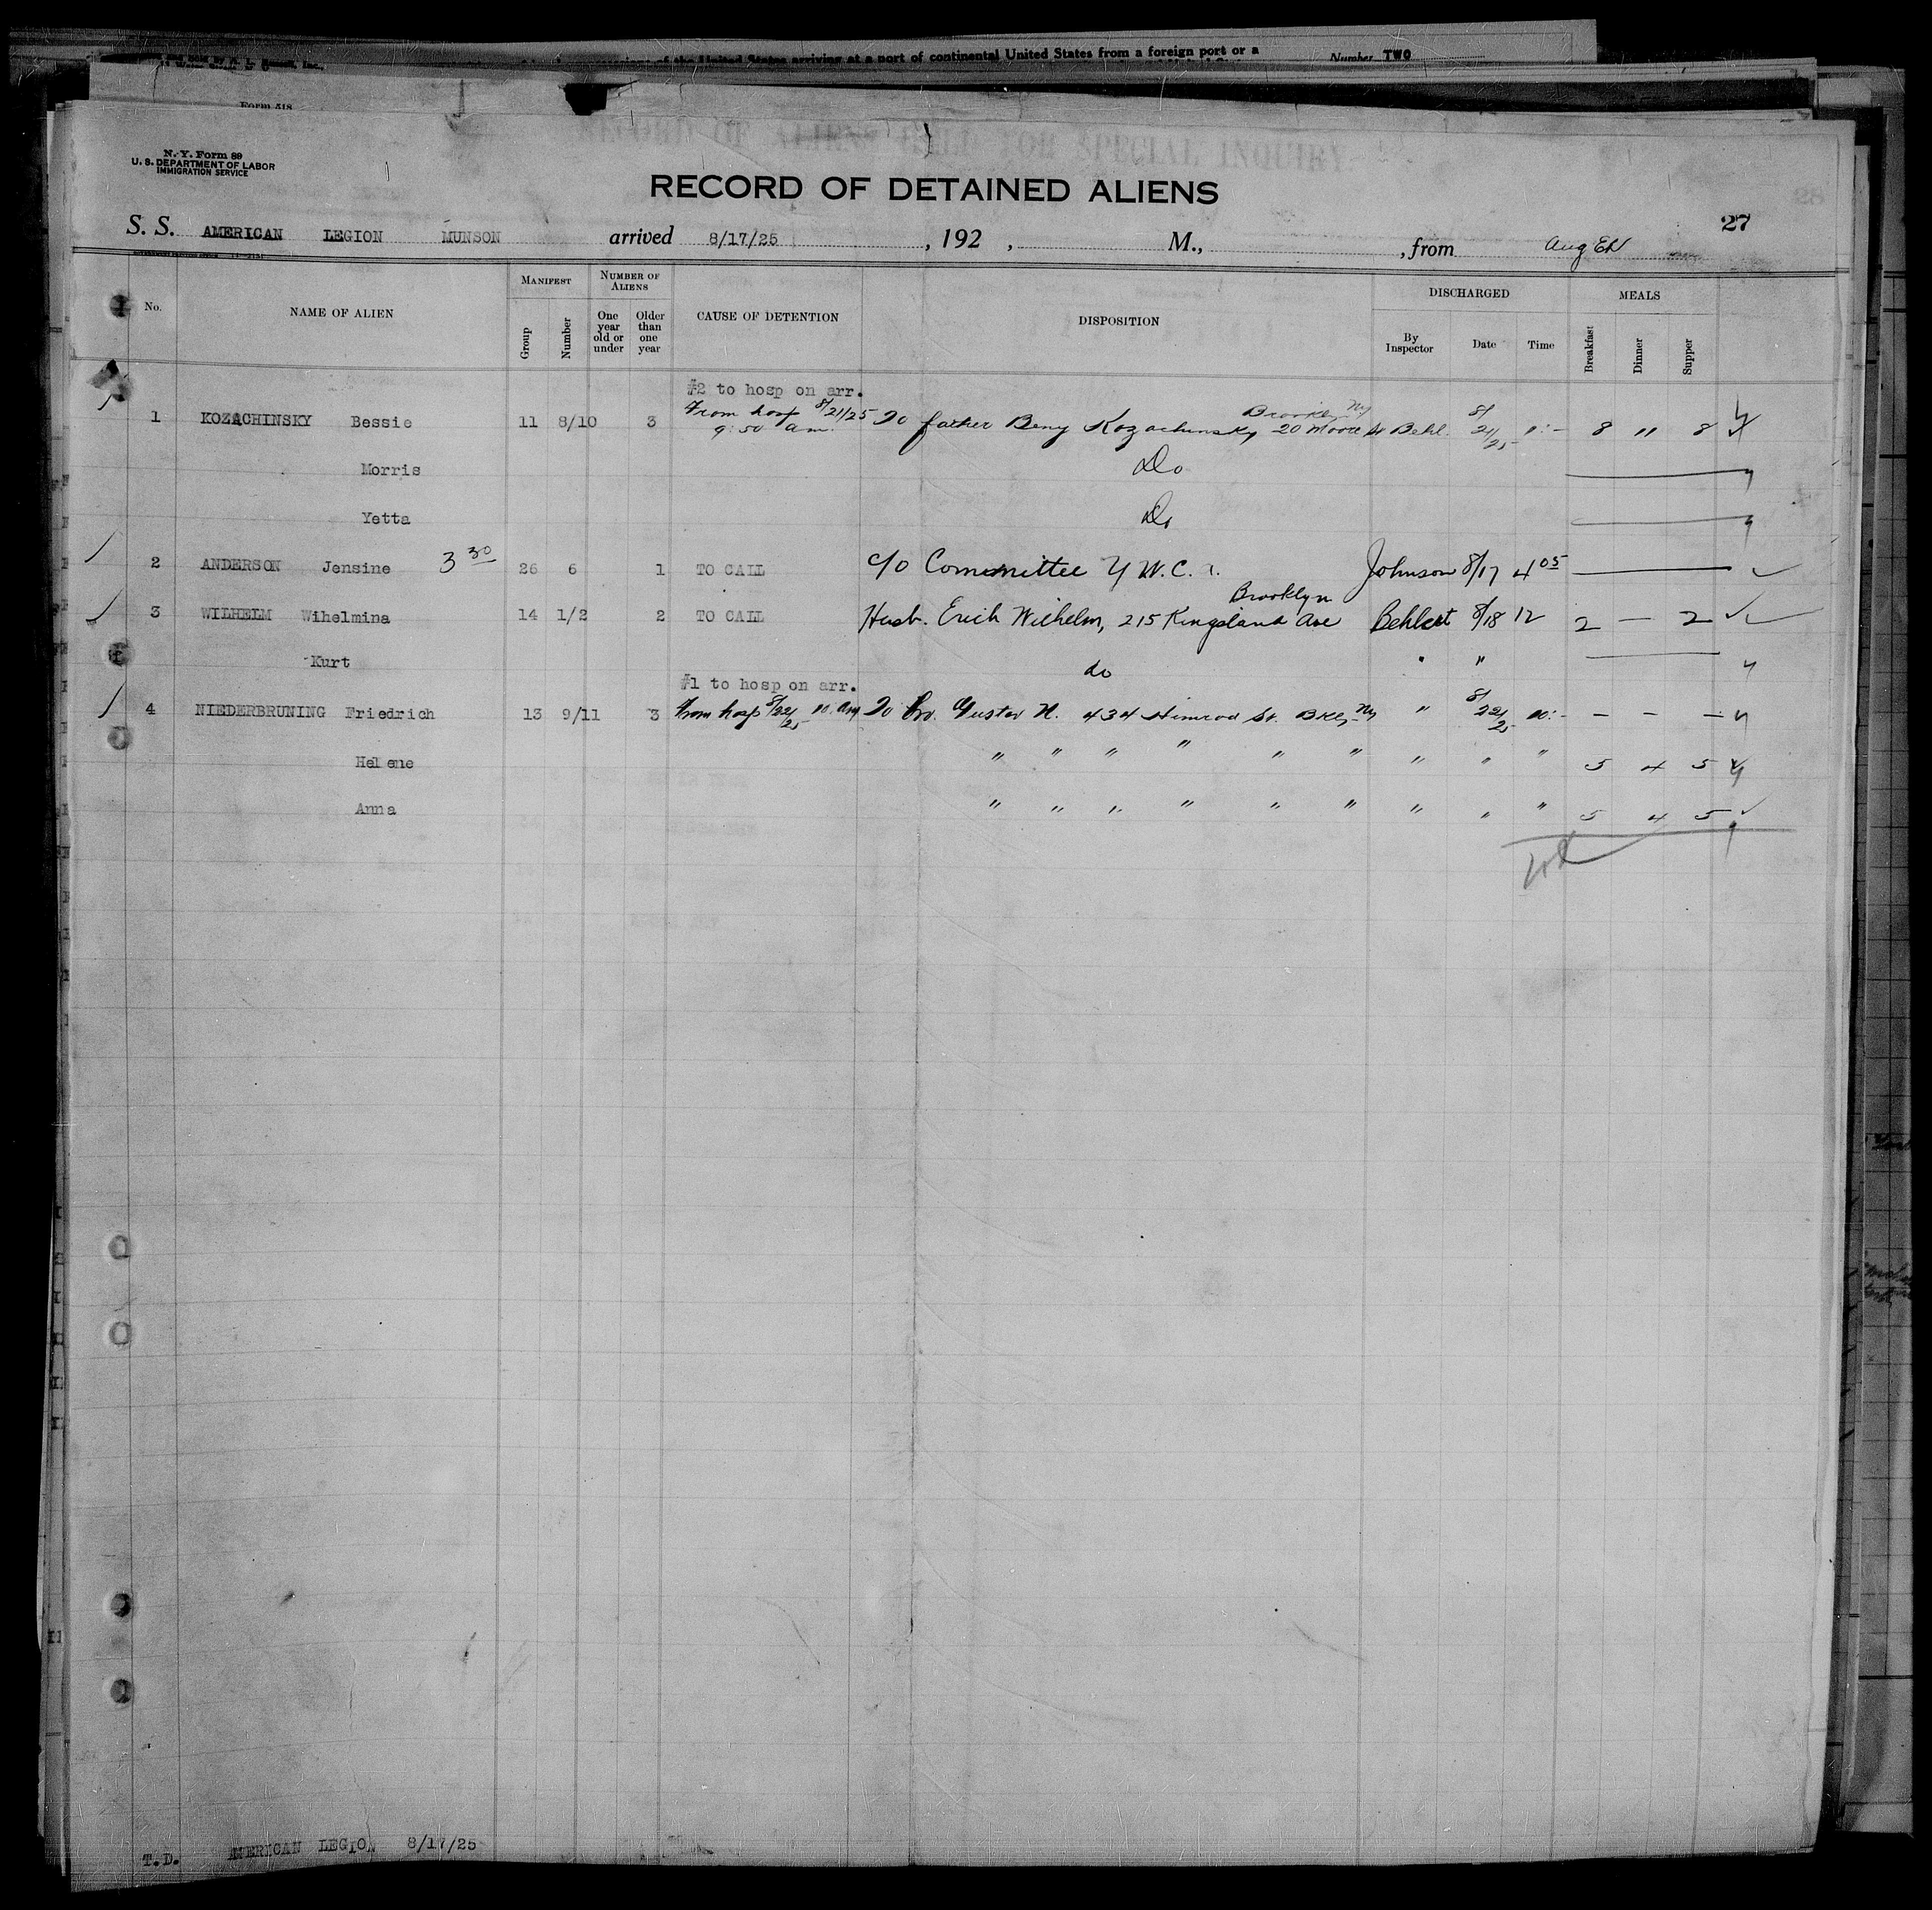 of the United States arriving at a port of continental United States from a foreign port or a
Number TWO
Form 418
RECORD OF ALIENS HELD FOR SPECIAL INQUIRY
N. Y. Form 89
U. S. DEPARTMENT OF LABOR
IMMIGRATION SERVICE
RECORD OF DETAINED ALIENS
28
27
S. S. AMERICAN LEGION MUNSON arrived 8/17/25 , 192 , M., , from
No. NAME OF ALIEN MANIFEST Group Number NUMBER OF ALIENS One year old or under Older than one year CAUSE OF DETENTION DISPOSITION DISCHARGED By Inspector Date Time MEALS Breakfast Dinner Supper
#2 to hosp on arr.
1 KOZACHINSKY Bessie 11 8/10 3 From hosp 8/21/25 9:50 am. To father Beny Kozachinsky 20 Moore St Brooklyn Ny Behl. 8/21/25 8 " 8
Morris Do
Yetta Do
2 ANDERSON Jensine 3 30 26 6 1 TO CALL c/o Committee Y W. C. Johnson 8/17 4 05
3 WILHELM Wihelmina 14 1/2 2 TO CALL Husb. Erich Wilhelm, 215 Kingsland Ave Brooklyn Behlert 8/18 12 2 — 2
Kurt do " "
#1 to hosp on arr.
4 NIEDERBRUNING Friedrich 13 9/11 3 From hosp 8/22/25 10. am To bro. Gustav N. 434 Himrod St. Bkly Ny " 8/22/25 10:- — — —
Helene " " " " " " " " " 5 4 5
Anna " " " " " " " " " 5 4 5
T.D. AMERICAN LEGION 8/17/25